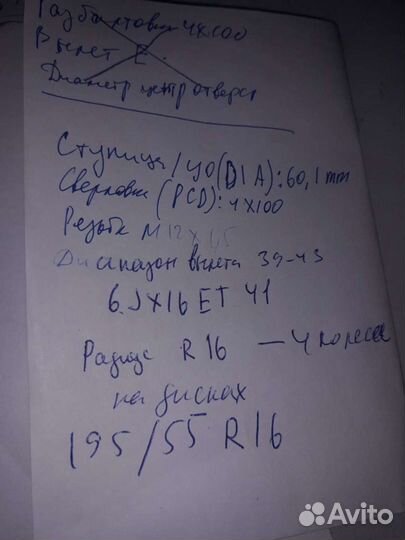 Разболтовка 4x100
Вылет Е
Диаметр центр отверст
Ступица / ЦО (DIA): 60,1 mm
Сверловка (PCD): 4x100
Резьба M12x1,5
Диапазон вылета 39-43
6.JX16 ET 41
Радиус R 16 — 4 колеса
на дисках
195/55 R16
Avito